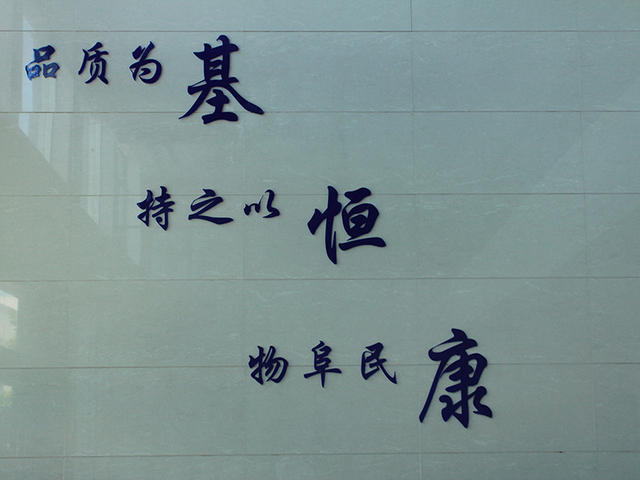 品质为基
持之以恒
物阜民康